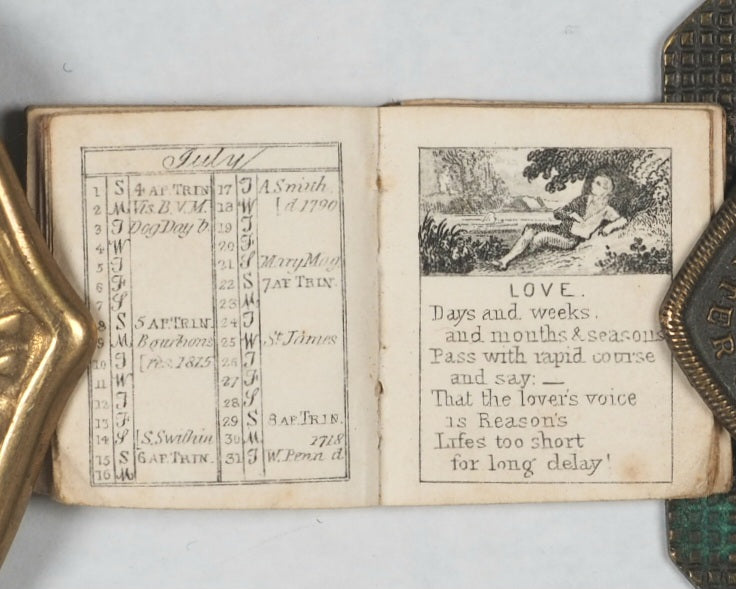 July
1 S 4 AF. TRIN
2 M Vis. B. V. M.
3 T Dog Day b.
4 W
5 T
6 F
7 S
8 S 5 AF. TRIN.
9 M Bourbons
10 T [res. 1815
11 W
12 T
13 F
14 S [S. Swithin
15 S 6 AF. TRIN.
16 M
17 T A Smith
18 W [d. 1790
19 T
20 F
21 S Mary Mag
22 S 7 AF TRIN.
23 M
24 T
25 W St James
26 T
27 F
28 S
29 S 8 AF. TRIN.
30 M 1718
31 T W. Penn d
LOVE.
Days and weeks,
and months & seasons
Pass with rapid course
and say: —
That the lover's voice
is Reason's
Lifes too short
for long delay!